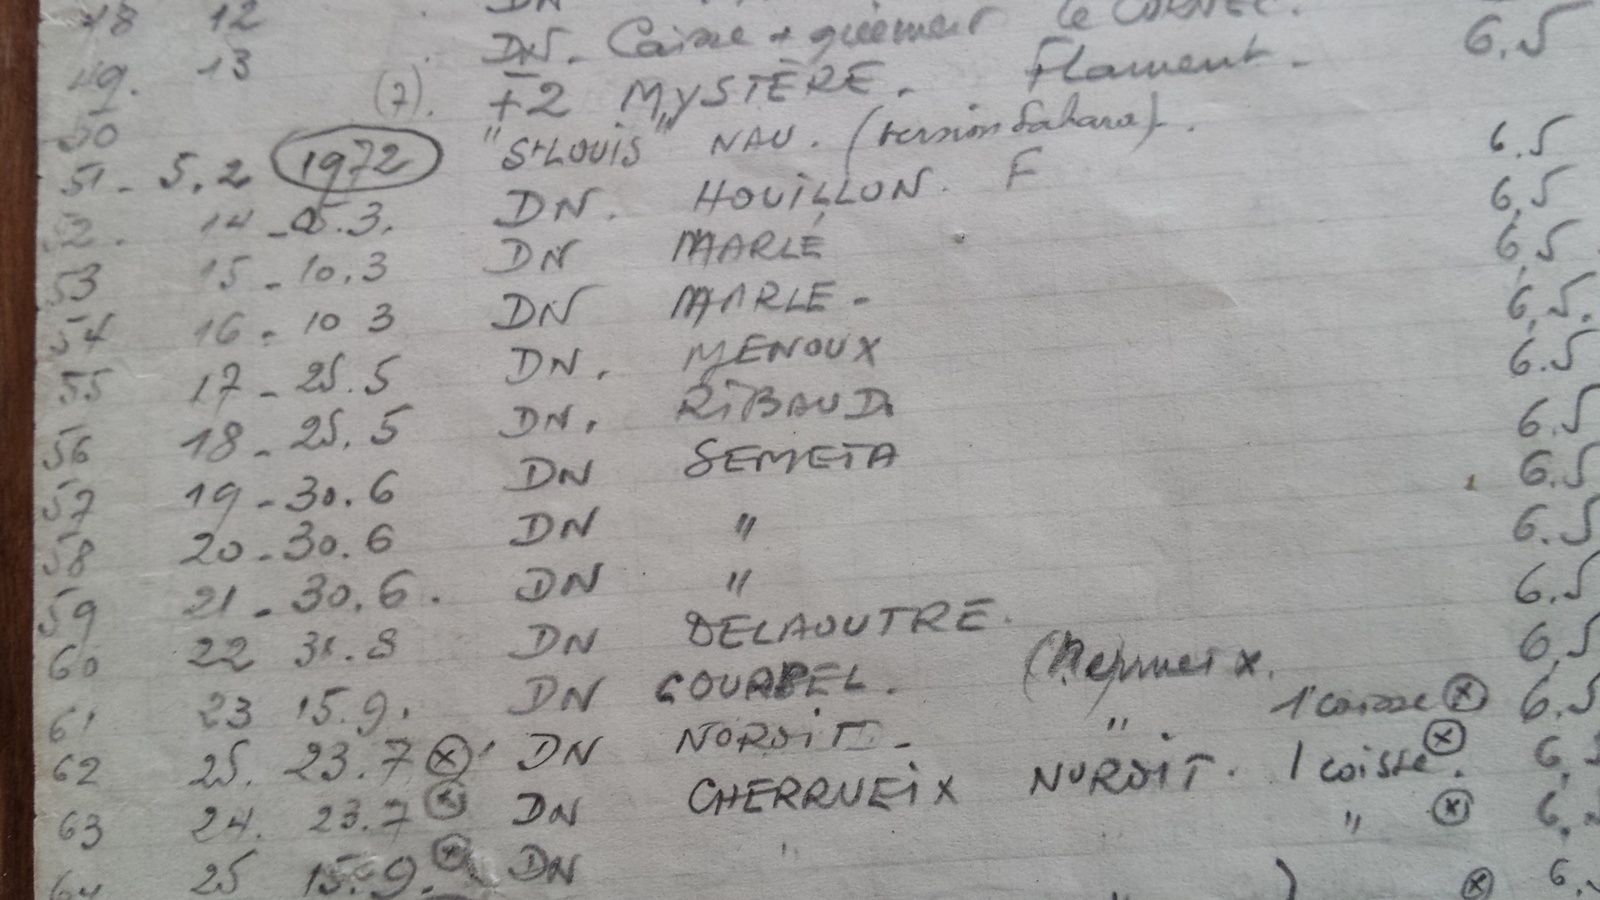 48 12 DN Le CORNEC.
49. 13 DN. Caisse + gréement 6.5
50 (7). +2 MYSTÈRE. Flament.
51 - 5.2 1972 "St LOUIS" NAU. (version Sahara). 6.5
52. 14 - 5.3. DN. HOUILLON. F 6.5
53 15 - 10.3 DN MARLÉ 6.5
54 16. 10 3 DN MARLE - 6.5.
55 17 - 25.5 DN. MENOUX 6.5
56 18 - 25.5 DN. RIBAUD. 6.5
57 19 - 30.6 DN SEMETA 6.5
58 20 - 30.6 DN " 6.5
59 21 - 30.6. DN " 6.5
60 22 31.8 DN DELAOUTRE. 6.5
61 23 15.9. DN 6.5
62 25. 23.7 ⊗ DN NOROIT. - " 1 caisse ⊗
63 24. 23.7 ⊗ DN CHERRUEIX NOROIT. 1 caisse. ⊗
64 25 15.9. ⊗ DN " ⊗